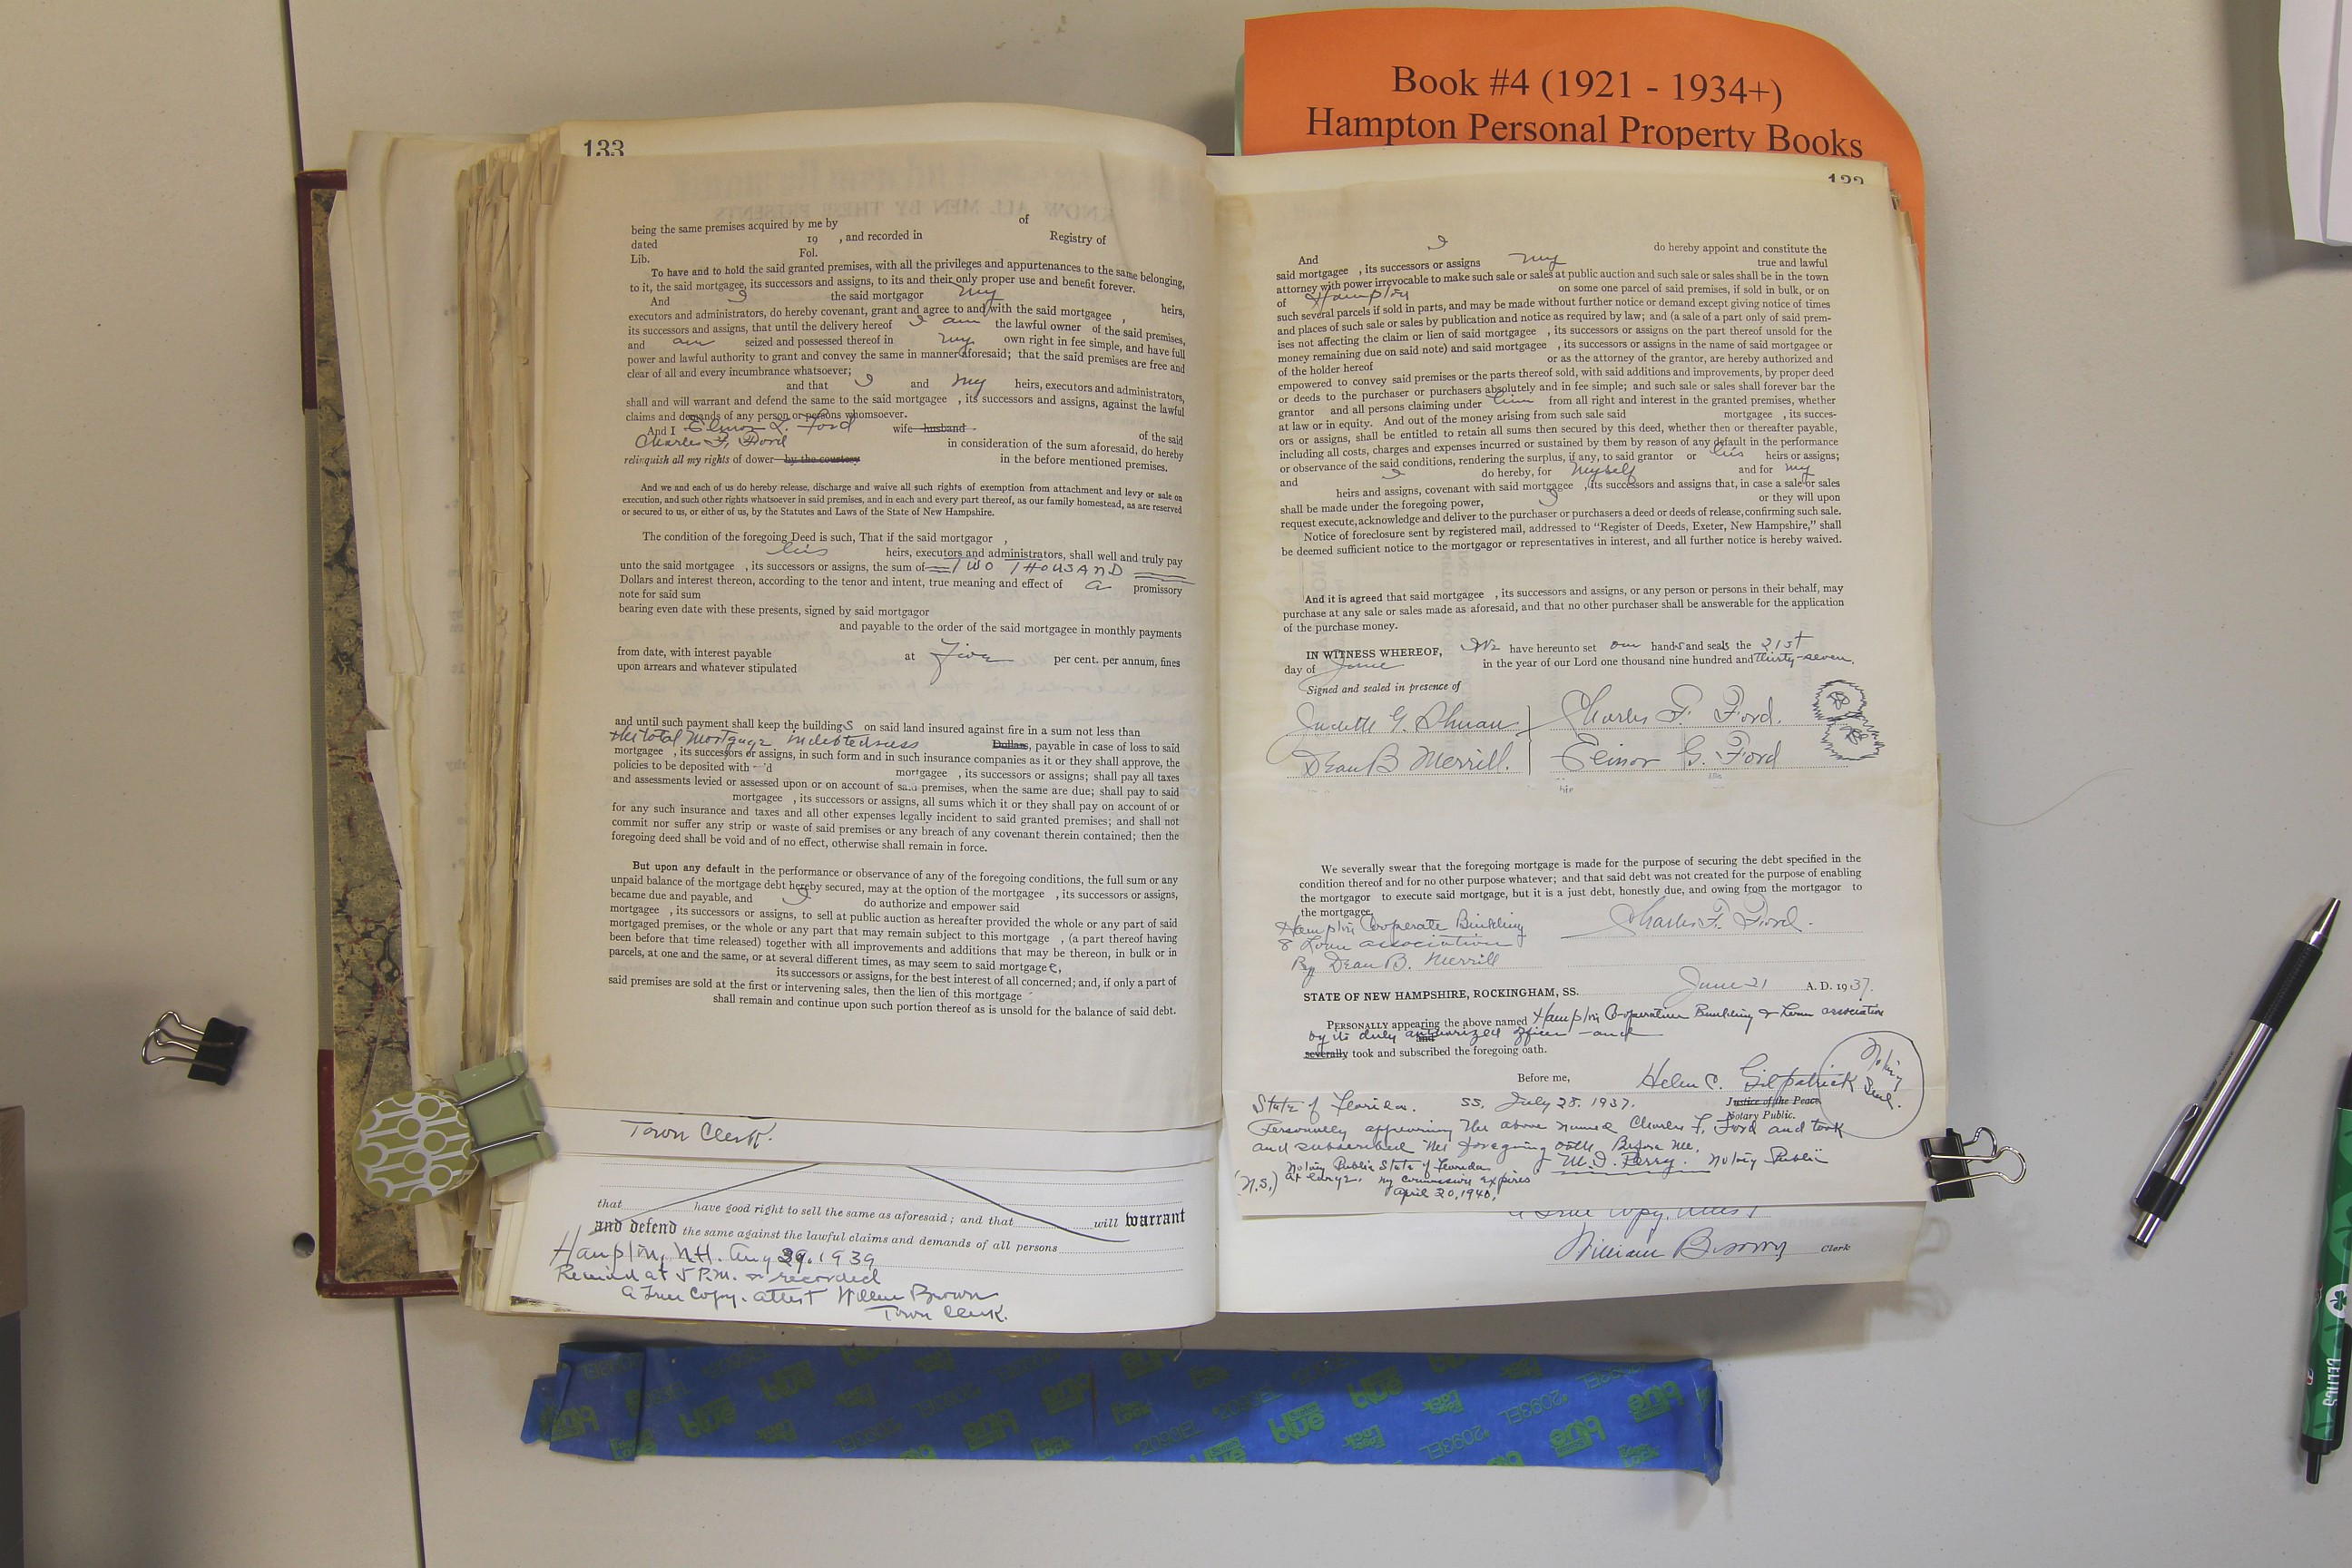 Book #4 (1921 - 1934+)
Hampton Personal Property Books
133
being the same premises acquired by me by of
dated 19 , and recorded in Registry of
Lib. Fol.
To have and to hold the said granted premises, with all the privileges and appurtenances to the same belonging,
to it, the said mortgagee, its successors and assigns, to its and their only proper use and benefit forever.
And I the said mortgagor my heirs,
executors and administrators, do hereby covenant, grant and agree to and with the said mortgagee ,
its successors and assigns, that until the delivery hereof I am the lawful owner of the said premises,
and am seized and possessed thereof in my own right in fee simple, and have full
power and lawful authority to grant and convey the same in manner aforesaid; that the said premises are free and
clear of all and every incumbrance whatsoever;
and that I and my heirs, executors and administrators,
shall and will warrant and defend the same to the said mortgagee , its successors and assigns, against the lawful
claims and demands of any person or persons whomsoever.
And I Elinor G. Ford wife husband of the said
Charles F. Ford in consideration of the sum aforesaid, do hereby
relinquish all my rights of dower by the courtesy in the before mentioned premises.
And we and each of us do hereby release, discharge and waive all such rights of exemption from attachment and levy or sale on
execution, and such other rights whatsoever in said premises, and in each and every part thereof, as our family homestead, as are reserved
or secured to us, or either of us, by the Statutes and Laws of the State of New Hampshire.
The condition of the foregoing Deed is such, That if the said mortgagor ,
his heirs, executors and administrators, shall well and truly pay
unto the said mortgagee , its successors or assigns, the sum of TWO THOUSAND
Dollars and interest thereon, according to the tenor and intent, true meaning and effect of a promissory
note for said sum
bearing even date with these presents, signed by said mortgagor
and payable to the order of the said mortgagee in monthly payments
from date, with interest payable at Five per cent. per annum, fines
upon arrears and whatever stipulated
and until such payment shall keep the buildings on said land insured against fire in a sum not less than
the total mortgage indebtedness Dollars, payable in case of loss to said
mortgagee , its successors or assigns, in such form and in such insurance companies as it or they shall approve, the
policies to be deposited with mortgagee , its successors or assigns; shall pay all taxes
and assessments levied or assessed upon or on account of said premises, when the same are due; shall pay to said
mortgagee , its successors or assigns, all sums which it or they shall pay on account of or
for any such insurance and taxes and all other expenses legally incident to said granted premises; and shall not
commit nor suffer any strip or waste of said premises or any breach of any covenant therein contained; then the
foregoing deed shall be void and of no effect, otherwise shall remain in force.
But upon any default in the performance or observance of any of the foregoing conditions, the full sum or any
unpaid balance of the mortgage debt hereby secured, may at the option of the mortgagee , its successors or assigns,
became due and payable, and I do authorize and empower said
mortgagee , its successors or assigns, to sell at public auction as hereafter provided the whole or any part of said
mortgaged premises, or the whole or any part that may remain subject to this mortgage , (a part thereof having
been before that time released) together with all improvements and additions that may be thereon, in bulk or in
parcels, at one and the same, or at several different times, as may seem to said mortgagee,
its successors or assigns, for the best interest of all concerned; and, if only a part of
said premises are sold at the first or intervening sales, then the lien of this mortgage
shall remain and continue upon such portion thereof as is unsold for the balance of said debt.
Town Clerk.
that have good right to sell the same as aforesaid; and that will warrant
and defend the same against the lawful claims and demands of all persons
Hampton, N.H. Aug 29. 1939
Received at 5 P.M. & recorded
a True Copy. attest William Brown
Town Clerk.
And I do hereby appoint and constitute the
said mortgagee , its successors or assigns my true and lawful
attorney with power irrevocable to make such sale or sales at public auction and such sale or sales shall be in the town
of Hampton on some one parcel of said premises, if sold in bulk, or on
such several parcels if sold in parts, and may be made without further notice or demand except giving notice of times
and places of such sale or sales by publication and notice as required by law; and (a sale of a part only of said prem-
ises not affecting the claim or lien of said mortgagee , its successors or assigns on the part thereof unsold for the
money remaining due on said note) and said mortgagee , its successors or assigns in the name of said mortgagee or
of the holder hereof or as the attorney of the grantor, are hereby authorized and
empowered to convey said premises or the parts thereof sold, with said additions and improvements, by proper deed
or deeds to the purchaser or purchasers absolutely and in fee simple; and such sale or sales shall forever bar the
grantor and all persons claiming under him from all right and interest in the granted premises, whether
at law or in equity. And out of the money arising from such sale said mortgagee , its succes-
ors or assigns, shall be entitled to retain all sums then secured by this deed, whether then or thereafter payable,
including all costs, charges and expenses incurred or sustained by them by reason of any default in the performance
or observance of the said conditions, rendering the surplus, if any, to said grantor or his heirs or assigns;
and I do hereby, for myself and for my
heirs and assigns, covenant with said mortgagee , its successors and assigns that, in case a sale or sales
shall be made under the foregoing power, I or they will upon
request execute, acknowledge and deliver to the purchaser or purchasers a deed or deeds of release, confirming such sale.
Notice of foreclosure sent by registered mail, addressed to "Register of Deeds, Exeter, New Hampshire," shall
be deemed sufficient notice to the mortgagor or representatives in interest, and all further notice is hereby waived.
And it is agreed that said mortgagee , its successors and assigns, or any person or persons in their behalf, may
purchase at any sale or sales made as aforesaid, and that no other purchaser shall be answerable for the application
of the purchase money.
IN WITNESS WHEREOF, We have hereunto set our hands and seals the 21st
day of June in the year of our Lord one thousand nine hundred and thirty-seven.
Signed and sealed in presence of
Charles F. Ford.
Dean B Merrill. Elinor G. Ford
We severally swear that the foregoing mortgage is made for the purpose of securing the debt specified in the
condition thereof and for no other purpose whatever; and that said debt was not created for the purpose of enabling
the mortgagor to execute said mortgage, but it is a just debt, honestly due, and owing from the mortgagor to
the mortgagee.
Hampton Cooperate Building
& Loan association Charles F. Ford.
By Dean B. Merrill
STATE OF NEW HAMPSHIRE, ROCKINGHAM, SS. June 21 A. D. 1937.
PERSONALLY appearing the above named Hampton Cooperative Building & Loan association
by its duly authorized officer and
severally took and subscribed the foregoing oath.
Before me, Helen C. Gilpatrick Notary Seal.
Justice of the Peace
Notary Public.
State of Florida. SS. July 28. 1937.
Personally appearing the above named Charles F. Ford and took
and subscribed the foregoing oath, Before me,
M. D. Perry. Notary Public
Notary Public State of Florida
(N.S.) at large. my commission expires
April 20, 1940.
a True Copy, Attest
William Brown Clerk
CELTICS